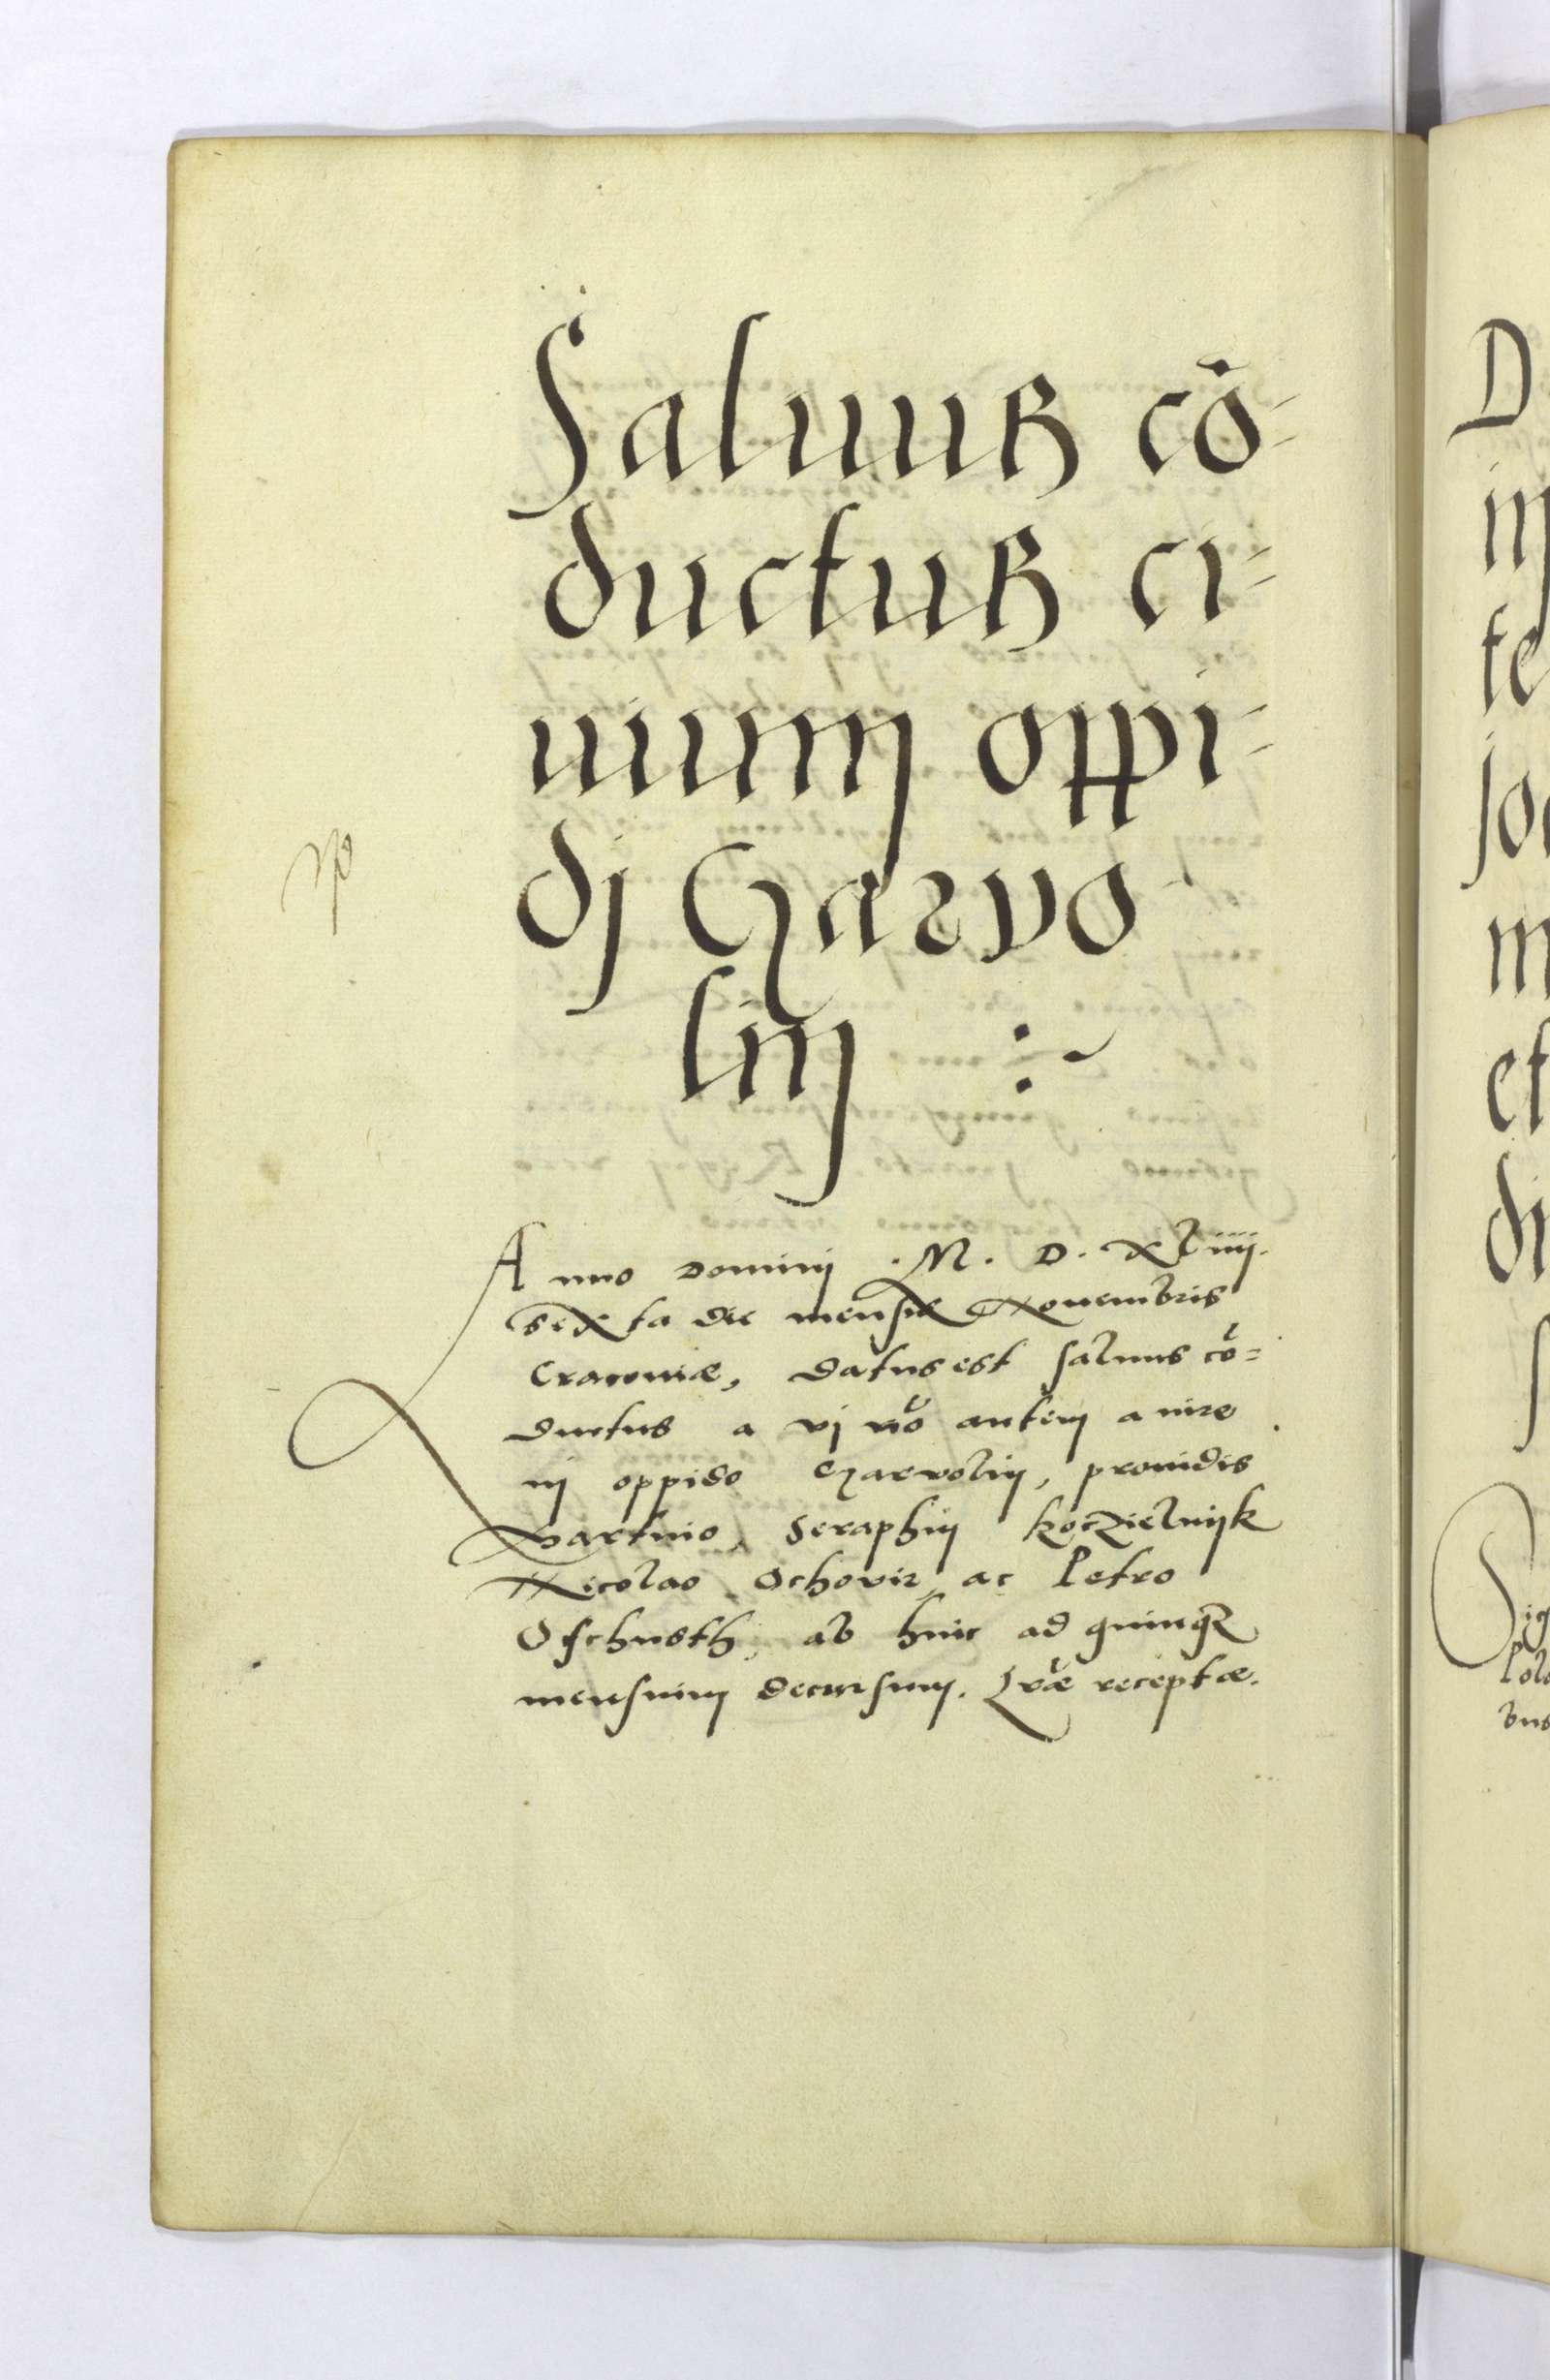 Saluus cō-
ductus ci-
uium oppi-
dj Czarvo
lin :~
Anno Domini . M . D . xliiij.
sexta die mensis Nouembris
Cracouiæ, datus est saluus cō=
ductus a vj nō autem a iure
in oppido Czarvolin, prouidis
Martino, Seraphin koczielnijk
Nicolao Ochovic, ac Petro
Oschusth, ab huic ad quinqz
mensium decursum. Lræ receptæ.
D
in
te
joa
m
et
di